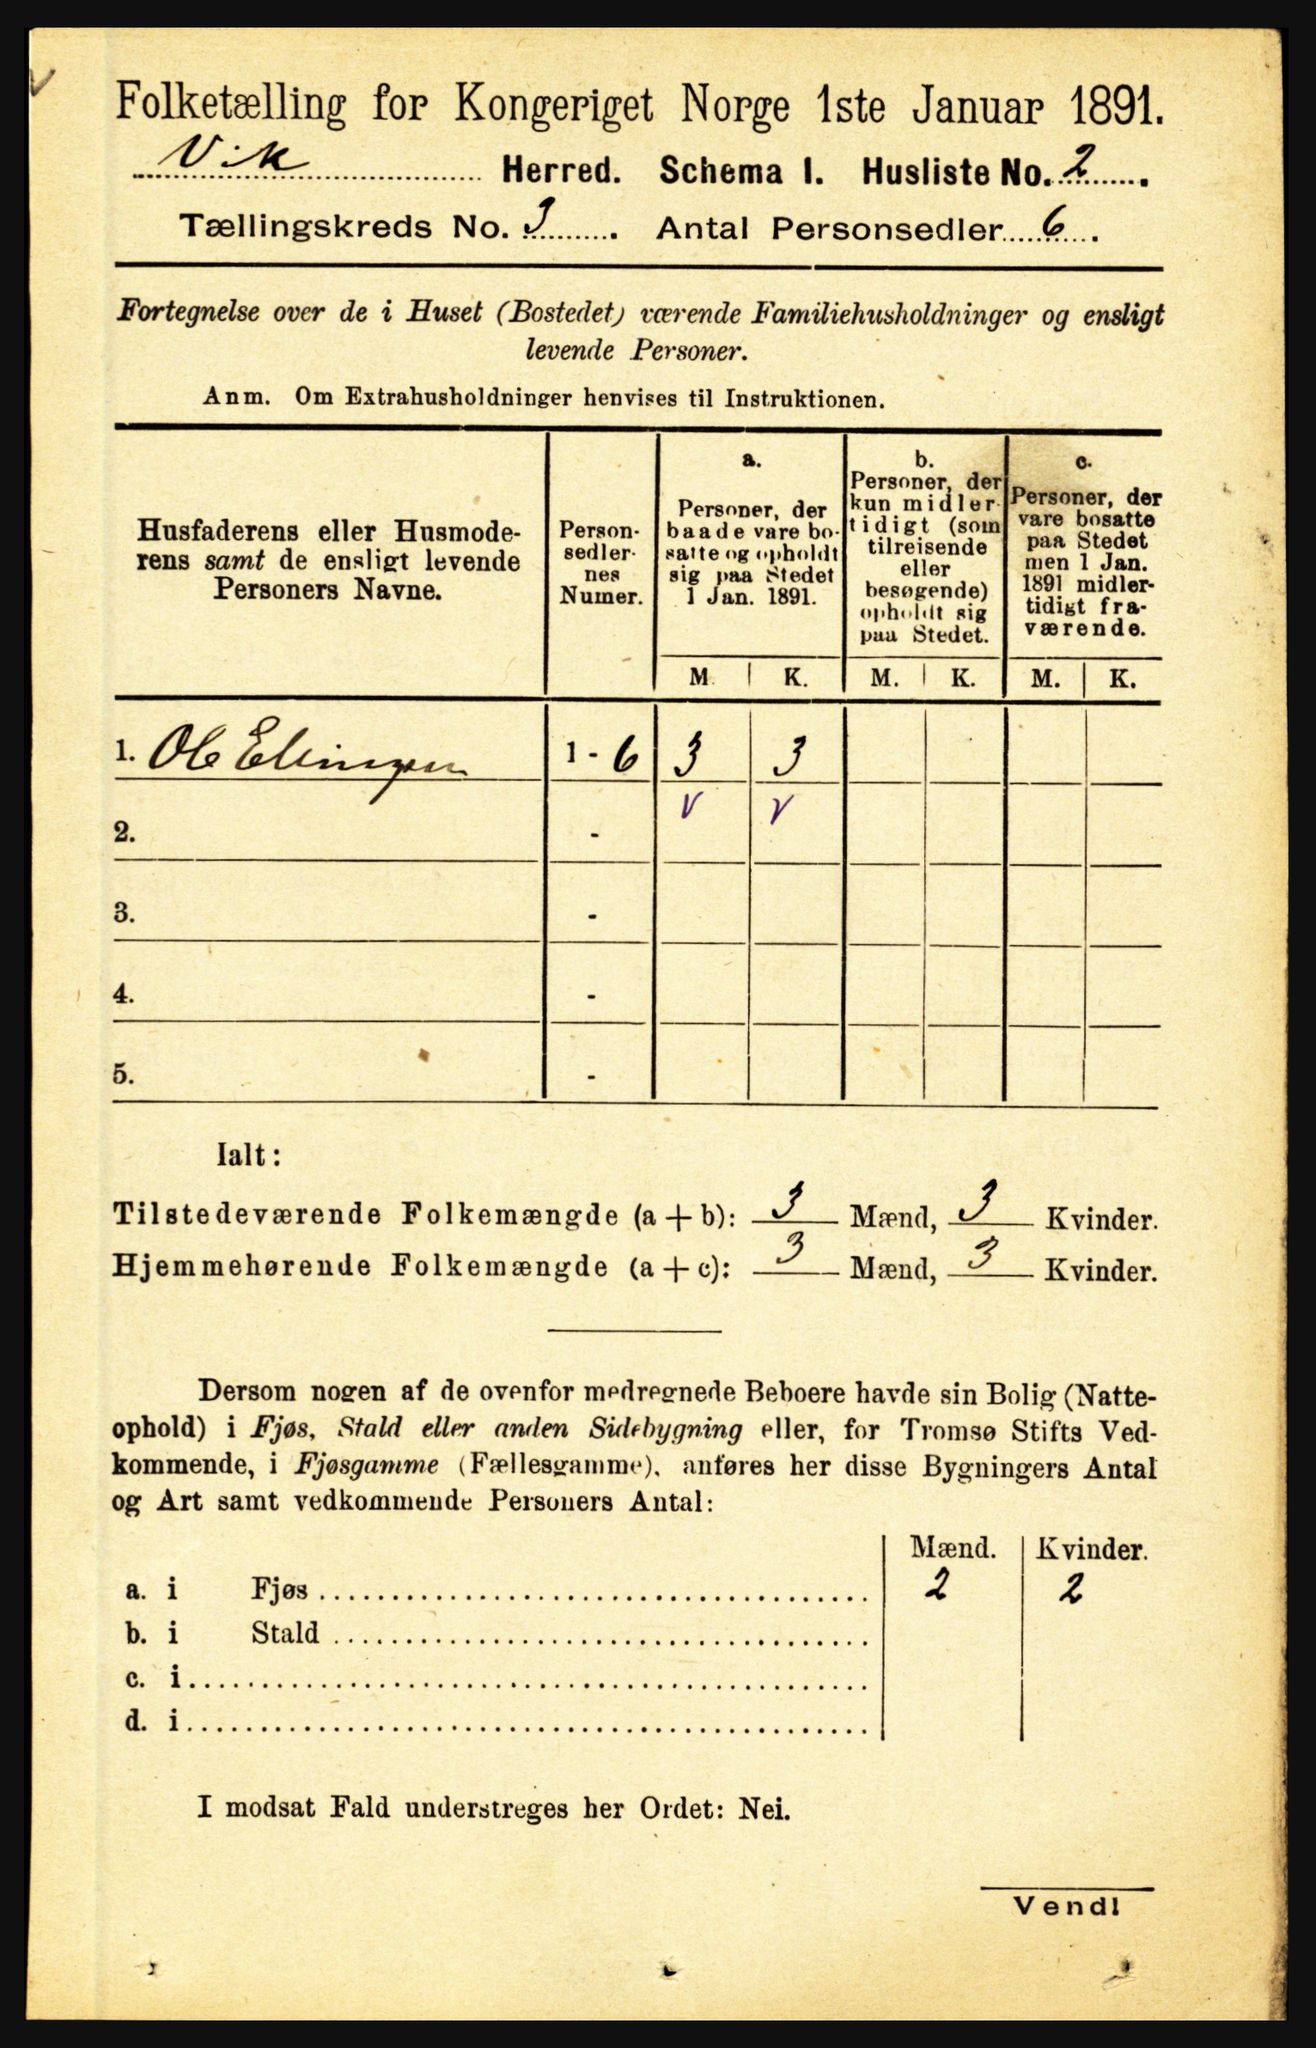 Folketælling for Kongeriget Norge 1ste Januar 1891.
Vik Herred. Schema I. Husliste No. 2.
Tællingskreds No. 3. Antal Personsedler 6.
Fortegnelse over de i Huset (Bostedet) værende Familiehusholdninger og ensligt
levende Personer.
Anm. Om Extrahusholdninger henvises til Instruktionen.
Husfaderens eller Husmoderens
samt de ensligt levende
Personers Navne.
Person-
sedler-
nes
Numer.
a.
Personer, der
baade vare bo-
satte og opholdt
sig paa Stedet
1 Jan. 1891.
b.
Personer, der
kun midler-
tidigt (som
tilreisende
eller
besøgende)
opholdt sig
paa Stedet.
c.
Personer, der
vare bosatte
paa Stedet
men 1 Jan.
1891 midler-
tidigt fra-
værende.
M. K. M. K. M. K.
1. Ole 1 - 6 3 3
2. -
3. -
4. -
5. -
Ialt:
Tilstedeværende Folkemængde (a + b): 3 Mænd, 3 Kvinder.
Hjemmehørende Folkemængde (a + c): 3 Mænd, 3 Kvinder.
Dersom nogen af de ovenfor medregnede Beboere havde sin Bolig (Natte-
ophold) i Fjøs, Stald eller anden Sidebygning eller, for Tromsø Stifts Ved-
kommende, i Fjøsgamme (Fællesgamme), anføres her disse Bygningers Antal
og Art samt vedkommende Personers Antal:
Mænd. Kvinder.
a. i Fjøs 2 2
b. i Stald
c. i
d. i
I modsat Fald understreges her Ordet: Nei.
Vend!